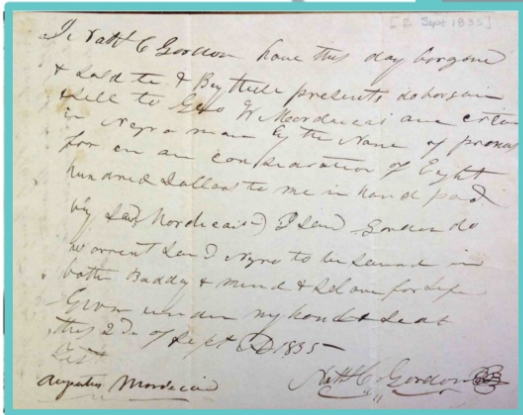 [2 Sept 1835]
I Nathl C Gordon have this day borgond
& Sold to & By these presents do borgain
& sell to Geo W Mordecai a certen
in Negro man By the Name of
for en an consideration of Eight
hundred Dollars to me in hand paid
by Said Mordecai I Said Gordon do
worrent Said Negro to be Sound in
both Boddy & mind & Slave for Life
Given under my hand & Seal
this 2d of Sept AD 1835
Test
Augustus Mordecai
Nathl C Gordon